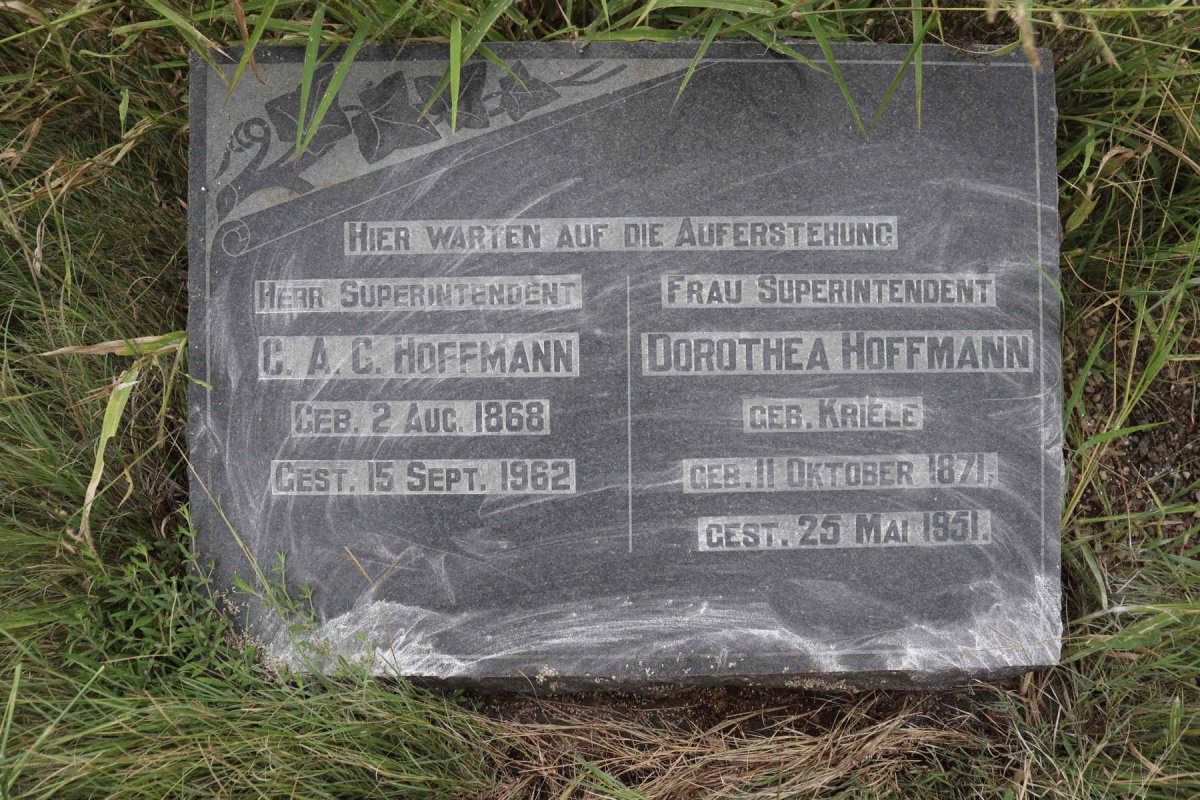 Hier warten auf die Auferstehung
Herr Superintendent
C. A. C. Hoffmann
Geb. 2 Aug. 1868
Gest. 15 Sept. 1962
Frau Superintendent
Dorothea Hoffmann
geb. Kriele
geb. 11 Oktober 1871,
gest. 25 Mai 1951.